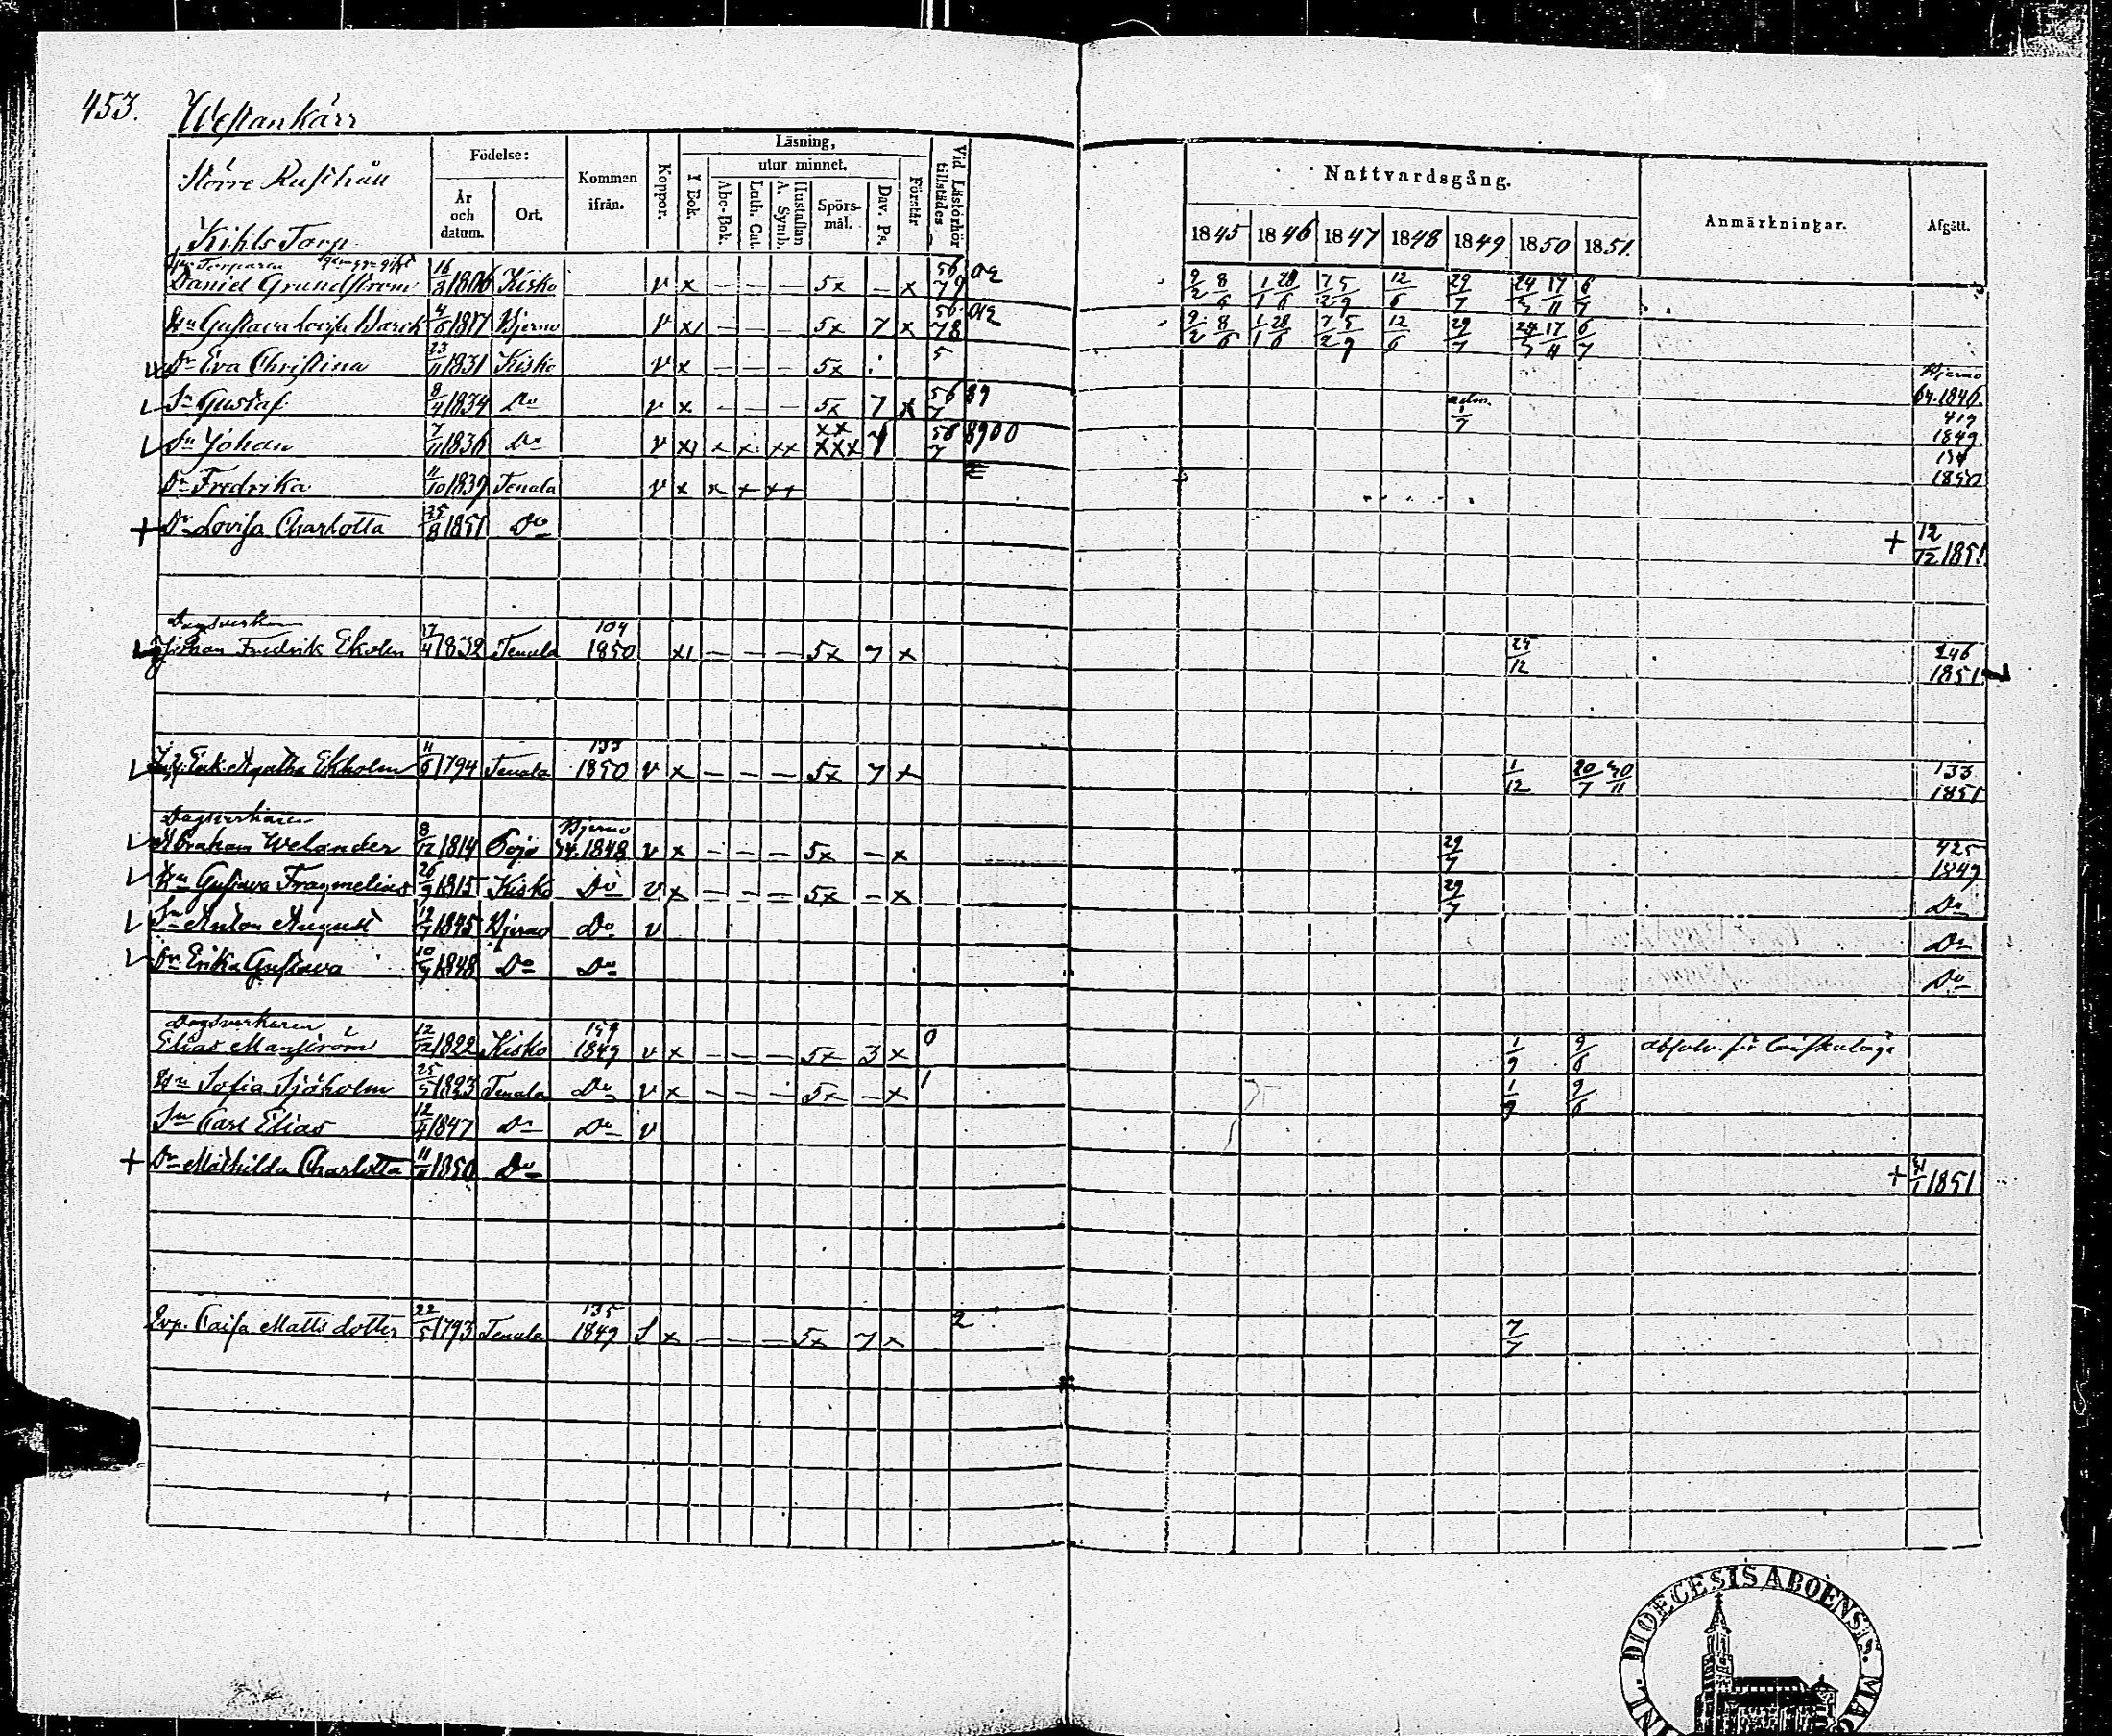 453. Westankärr
Större Rusthåll
Kihls Torp
Födelse:
År och datum.
Ort.
Kommen ifrån.
Koppor.
Läsning,
I Bok.
utur minnet.
Abc-Bok.
Luth. Cat.
A. Symb.
Hustaflan
Spörs-mål.
Dav. Ps.
Förstår
Vid Läsförhör tillstädes
Nattvardsgång.
1845 1846 1847 1848 1849 1850 1851.
Anmärkningar.
Afgått.
Torparen
Daniel Grundström 16/3 1806 Kisko v x – – – 5x – x 9/2 8/6 1/1 28/6 7/2 5/9 12/6 29/7 17/11 6/7
Hu Gustava Lovisa 1817 Bjerno v x1 – – – 5x 7 x 9/2 8/6 1/1 28/6 7/2 5/9 12/6 29/7 17/11 6/7
Dr Eva Christina 23/11 1831 Kisko v x – – – 5x 5 Bjerno 1846.
Sn Gustaf 8/4 1834 Do v x – – – 5x 7 x 56 89 7 adm. 1/7 419 1849
Sn Johan 7/11 1836 Do v x1 x x xx xx xxx 7 8900 1850
Dr Fredrika 11/10 1839 Tenala v x x + ++
+ Dr Lovisa Charlotta 25/8 1851 Do + 12/12 1851
Johan Fredrik Ekholm 17/4 1832 Tenala 104 1850 x1 – – – 5x 7 x 25/12 246 1851
Agatha Ekholm 11/6 1794 Tenala 133 1850 v x – – – 5x 7 x 1/12 20/7 30/11 133 1851
Dagsverkaren
Abraham Welander 8/12 1814 Pojo Bjerno 1848 v x – – – 5x – x 29/7 425 1849
Hu Gustava Fragmelius 26/9 1815 Kisko Do v x – – – 5x – x 29/7 Do
Sn Anton August 1845 Bjerno Do v Do
Dr Erika Gustava 1848 Do Do Do
Dagsverkaren
Elias Manström 12/12 1822 Kisko 159 1849 v x – – – 5x 3 x 0 1/9 9/6 absolv. för
Hu Sofia Sjöholm 25/5 1823 Tenala Do v x – – – 5x – x 1 1/9 9/6
Sn Carl Elias 12/4 1847 Do Do v
+ Dr Mathilda Charlotta 1850 Do + 1851
Caisa Matts dotter 22/5 1793 Tenala 135 1849 S x – – – 5x 7 x 2 7/7
DIOECESIS ABOENSIS.